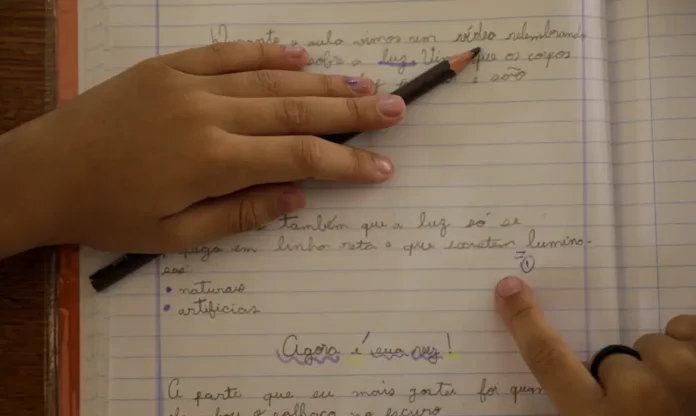 Durante a aula vimos um vídeo relembrando
sobre a luz. Vimos que os corpos
são
também que a luz só se
em linha reta e que existem lumino-
sos:
1
• naturais
• artificias
Agora é sua vez!
A parte que eu mais gostei foi quan
o palhaço no escuro